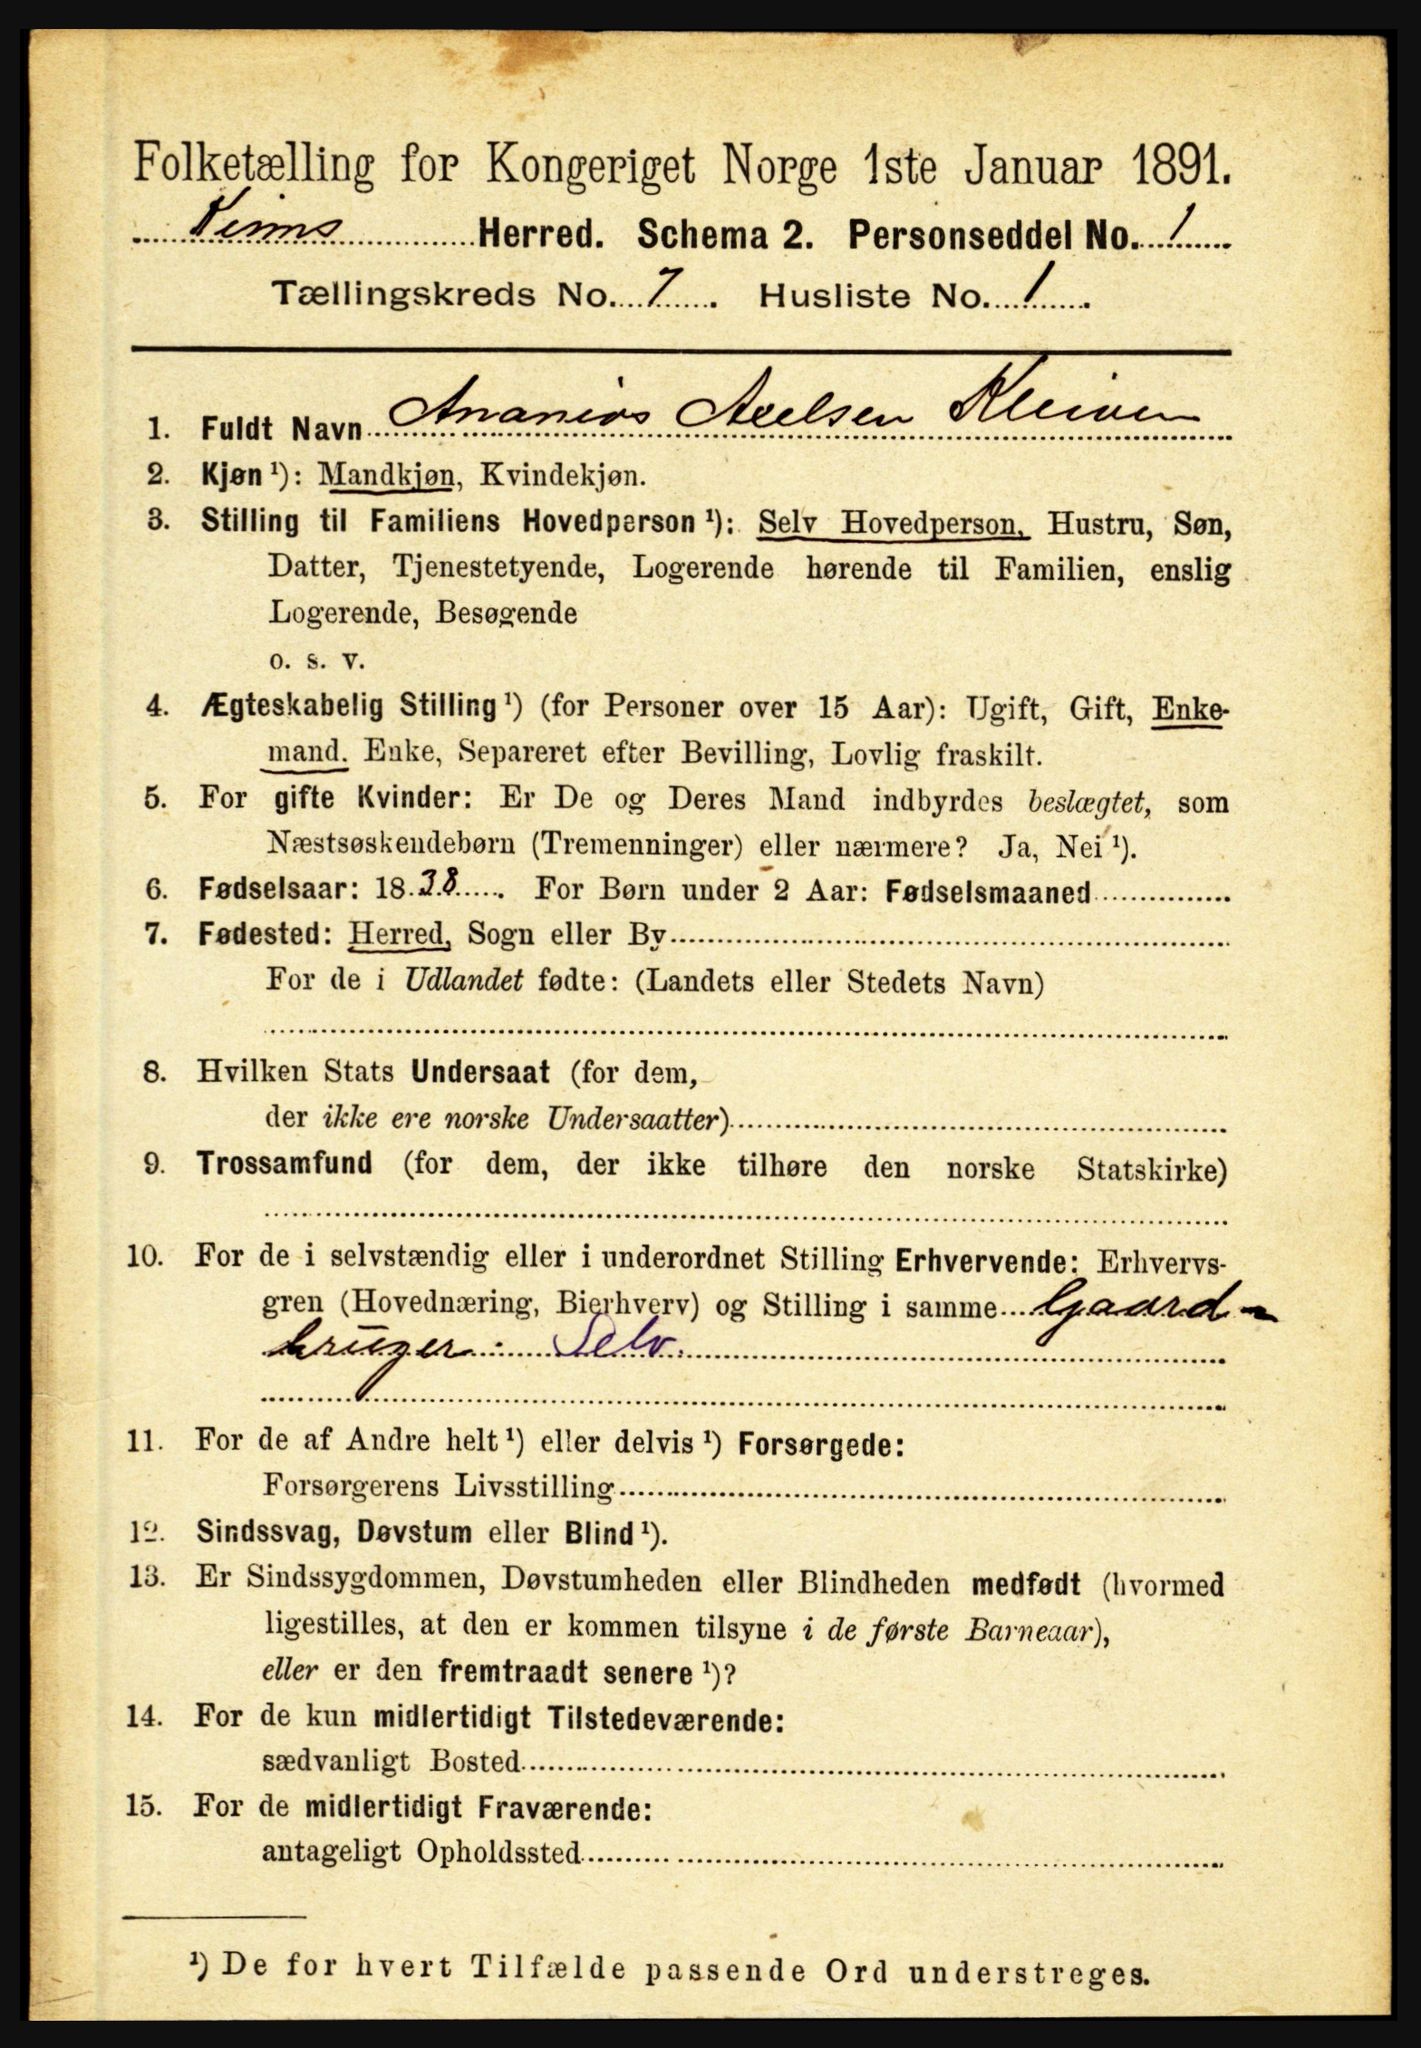 Folketælling for Kongeriget Norge 1ste Januar 1891.
Kinns Herred. Schema 2. Personseddel No. 1
Tællingskreds No. 7. Husliste No. 1.
1. Fuldt Navn Ananias Axelsen Kleiven
2. Kjøn ¹): Mandkjøn, Kvindekjøn.
3. Stilling til Familiens Hovedperson ¹): Selv Hovedperson, Hustru, Søn,
Datter, Tjenestetyende, Logerende hørende til Familien, enslig
Logerende, Besøgende
o. s. v.
4. Ægteskabelig Stilling ¹) (for Personer over 15 Aar): Ugift, Gift, Enke-
mand. Enke, Separeret efter Bevilling, Lovlig fraskilt.
5. For gifte Kvinder: Er De og Deres Mand indbyrdes beslægtet, som
Næstsøskendebørn (Tremenninger) eller nærmere? Ja, Nei ¹).
6. Fødselsaar: 1838. For Børn under 2 Aar: Fødselsmaaned
7. Fødested: Herred, Sogn eller By
For de i Udlandet fødte: (Landets eller Stedets Navn)
8. Hvilken Stats Undersaat (for dem,
der ikke ere norske Undersaatter)
9. Trossamfund (for dem, der ikke tilhøre den norske Statskirke)
10. For de i selvstændig eller i underordnet Stilling Erhvervende: Erhvervs-
gren (Hovednæring, Bierhverv) og Stilling i samme Gaard-
bruger. Selv.
11. For de af Andre helt ¹) eller delvis ¹) Forsørgede:
Forsørgerens Livsstilling
12. Sindssvag, Døvstum eller Blind ¹).
13. Er Sindssygdommen, Døvstumheden eller Blindheden medfødt (hvormed
ligestilles, at den er kommen tilsyne i de første Barneaar),
eller er den fremtraadt senere ¹)?
14. For de kun midlertidigt Tilstedeværende:
sædvanligt Bosted
15. For de midlertidigt Fraværende:
antageligt Opholdssted
¹) De for hvert Tilfælde passende Ord understreges.